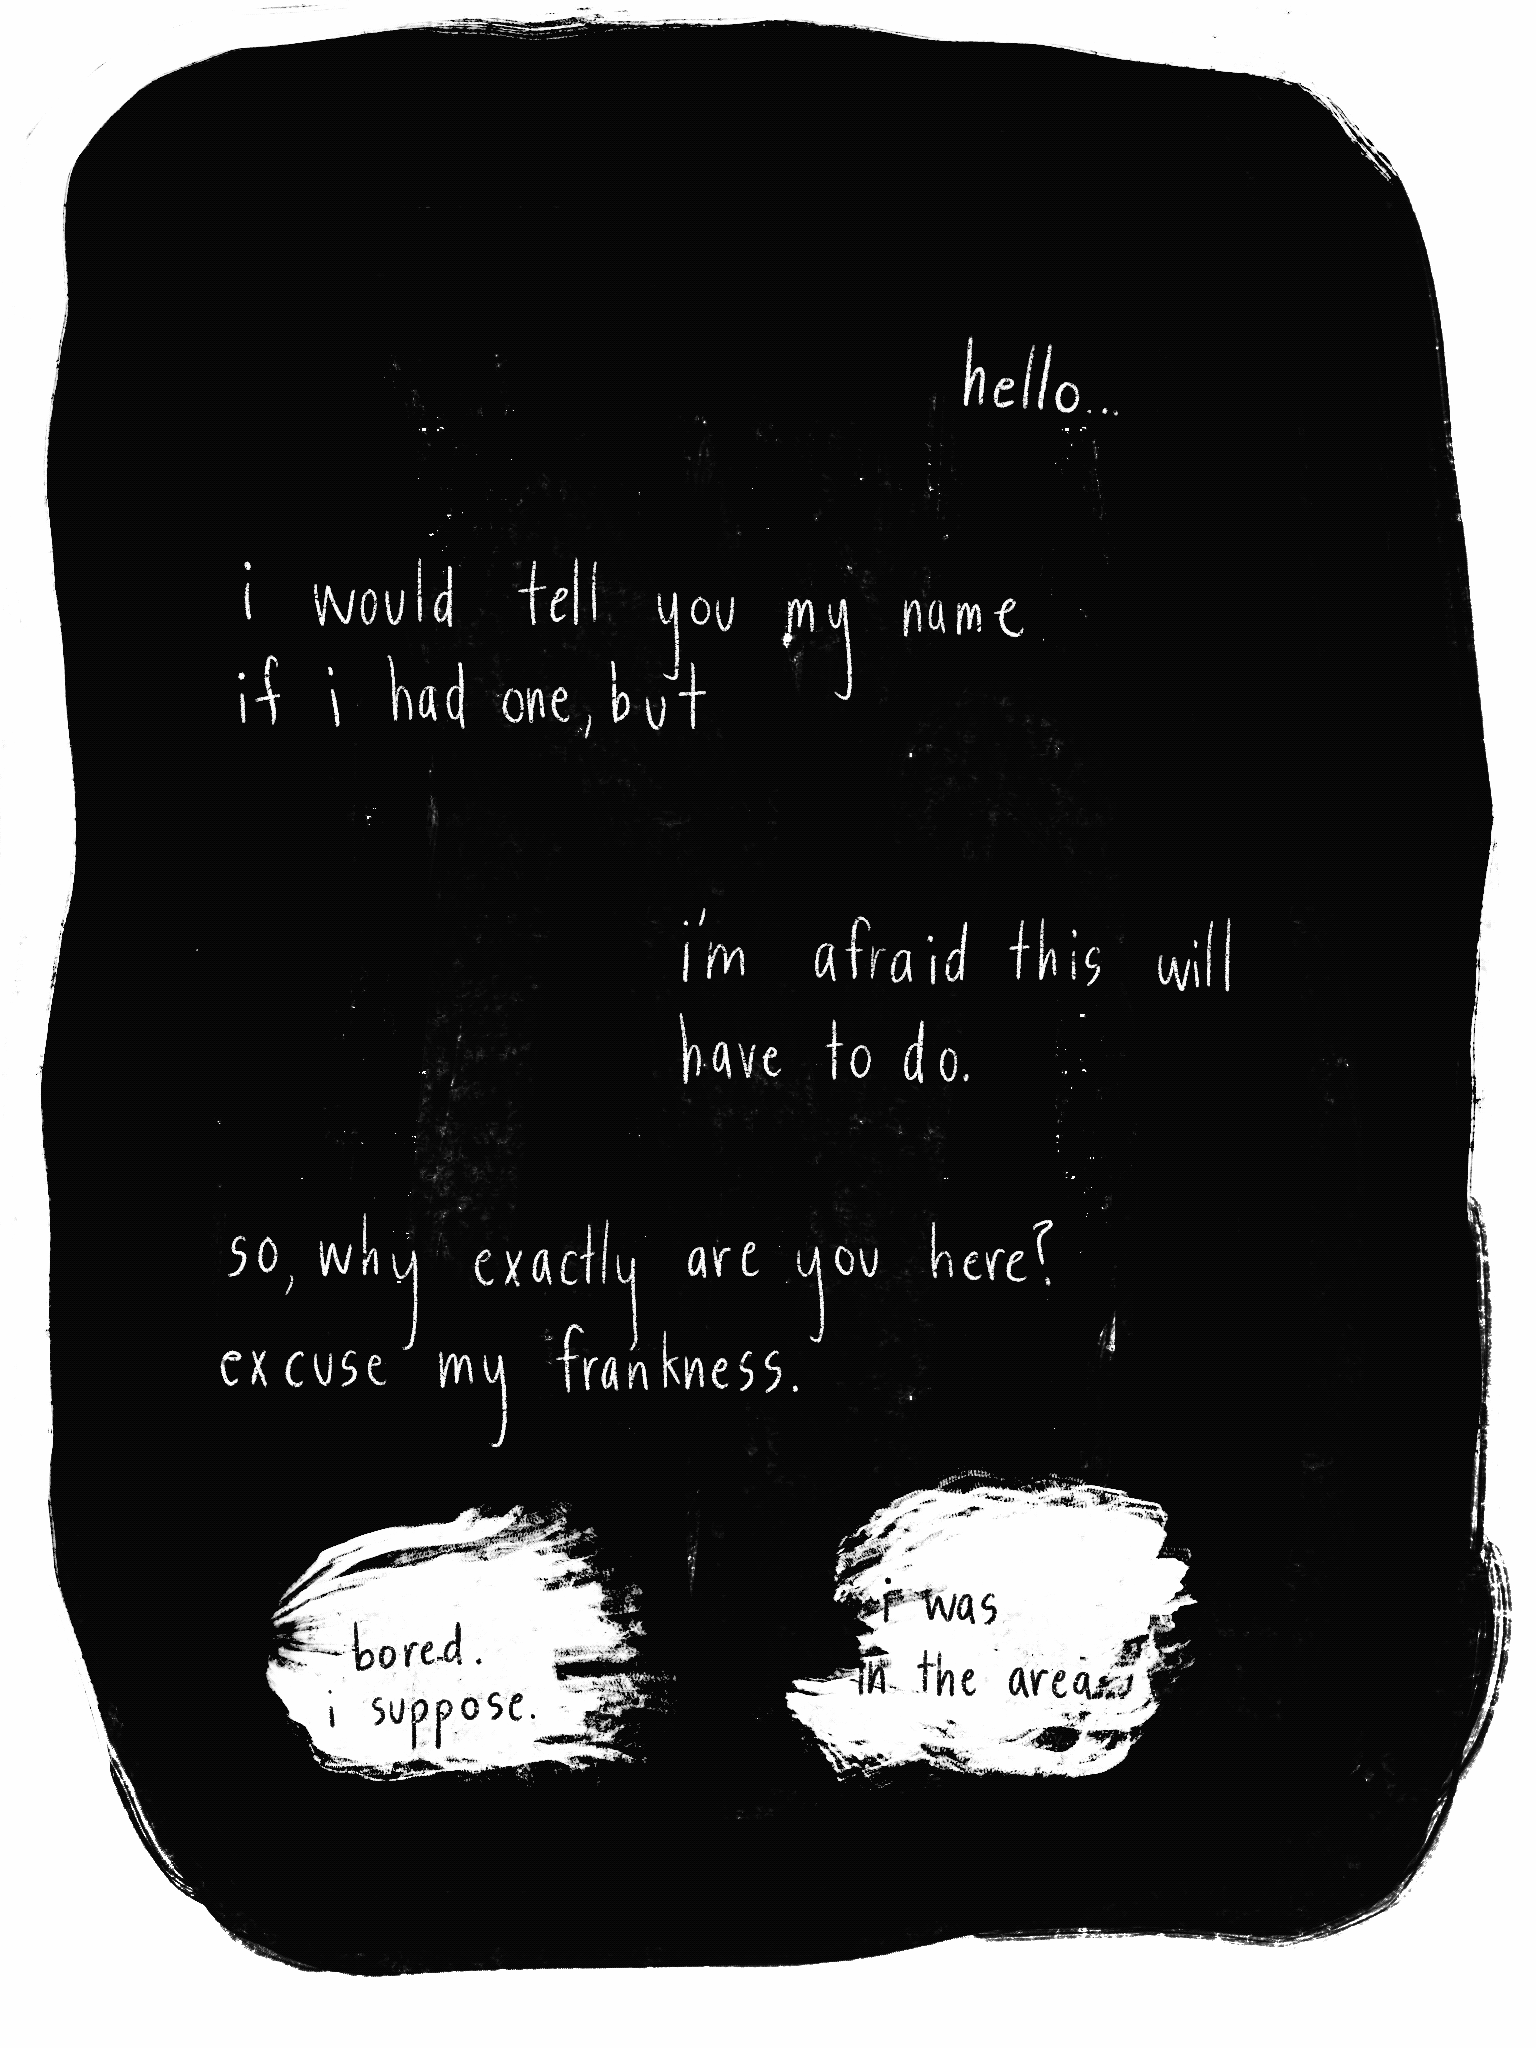 hello...
i would tell you my name
if i had one, but
i'm afraid this will
have to do.
so, why exactly are you here?
excuse my frankness.
bored.
i suppose.
i was
in the area...